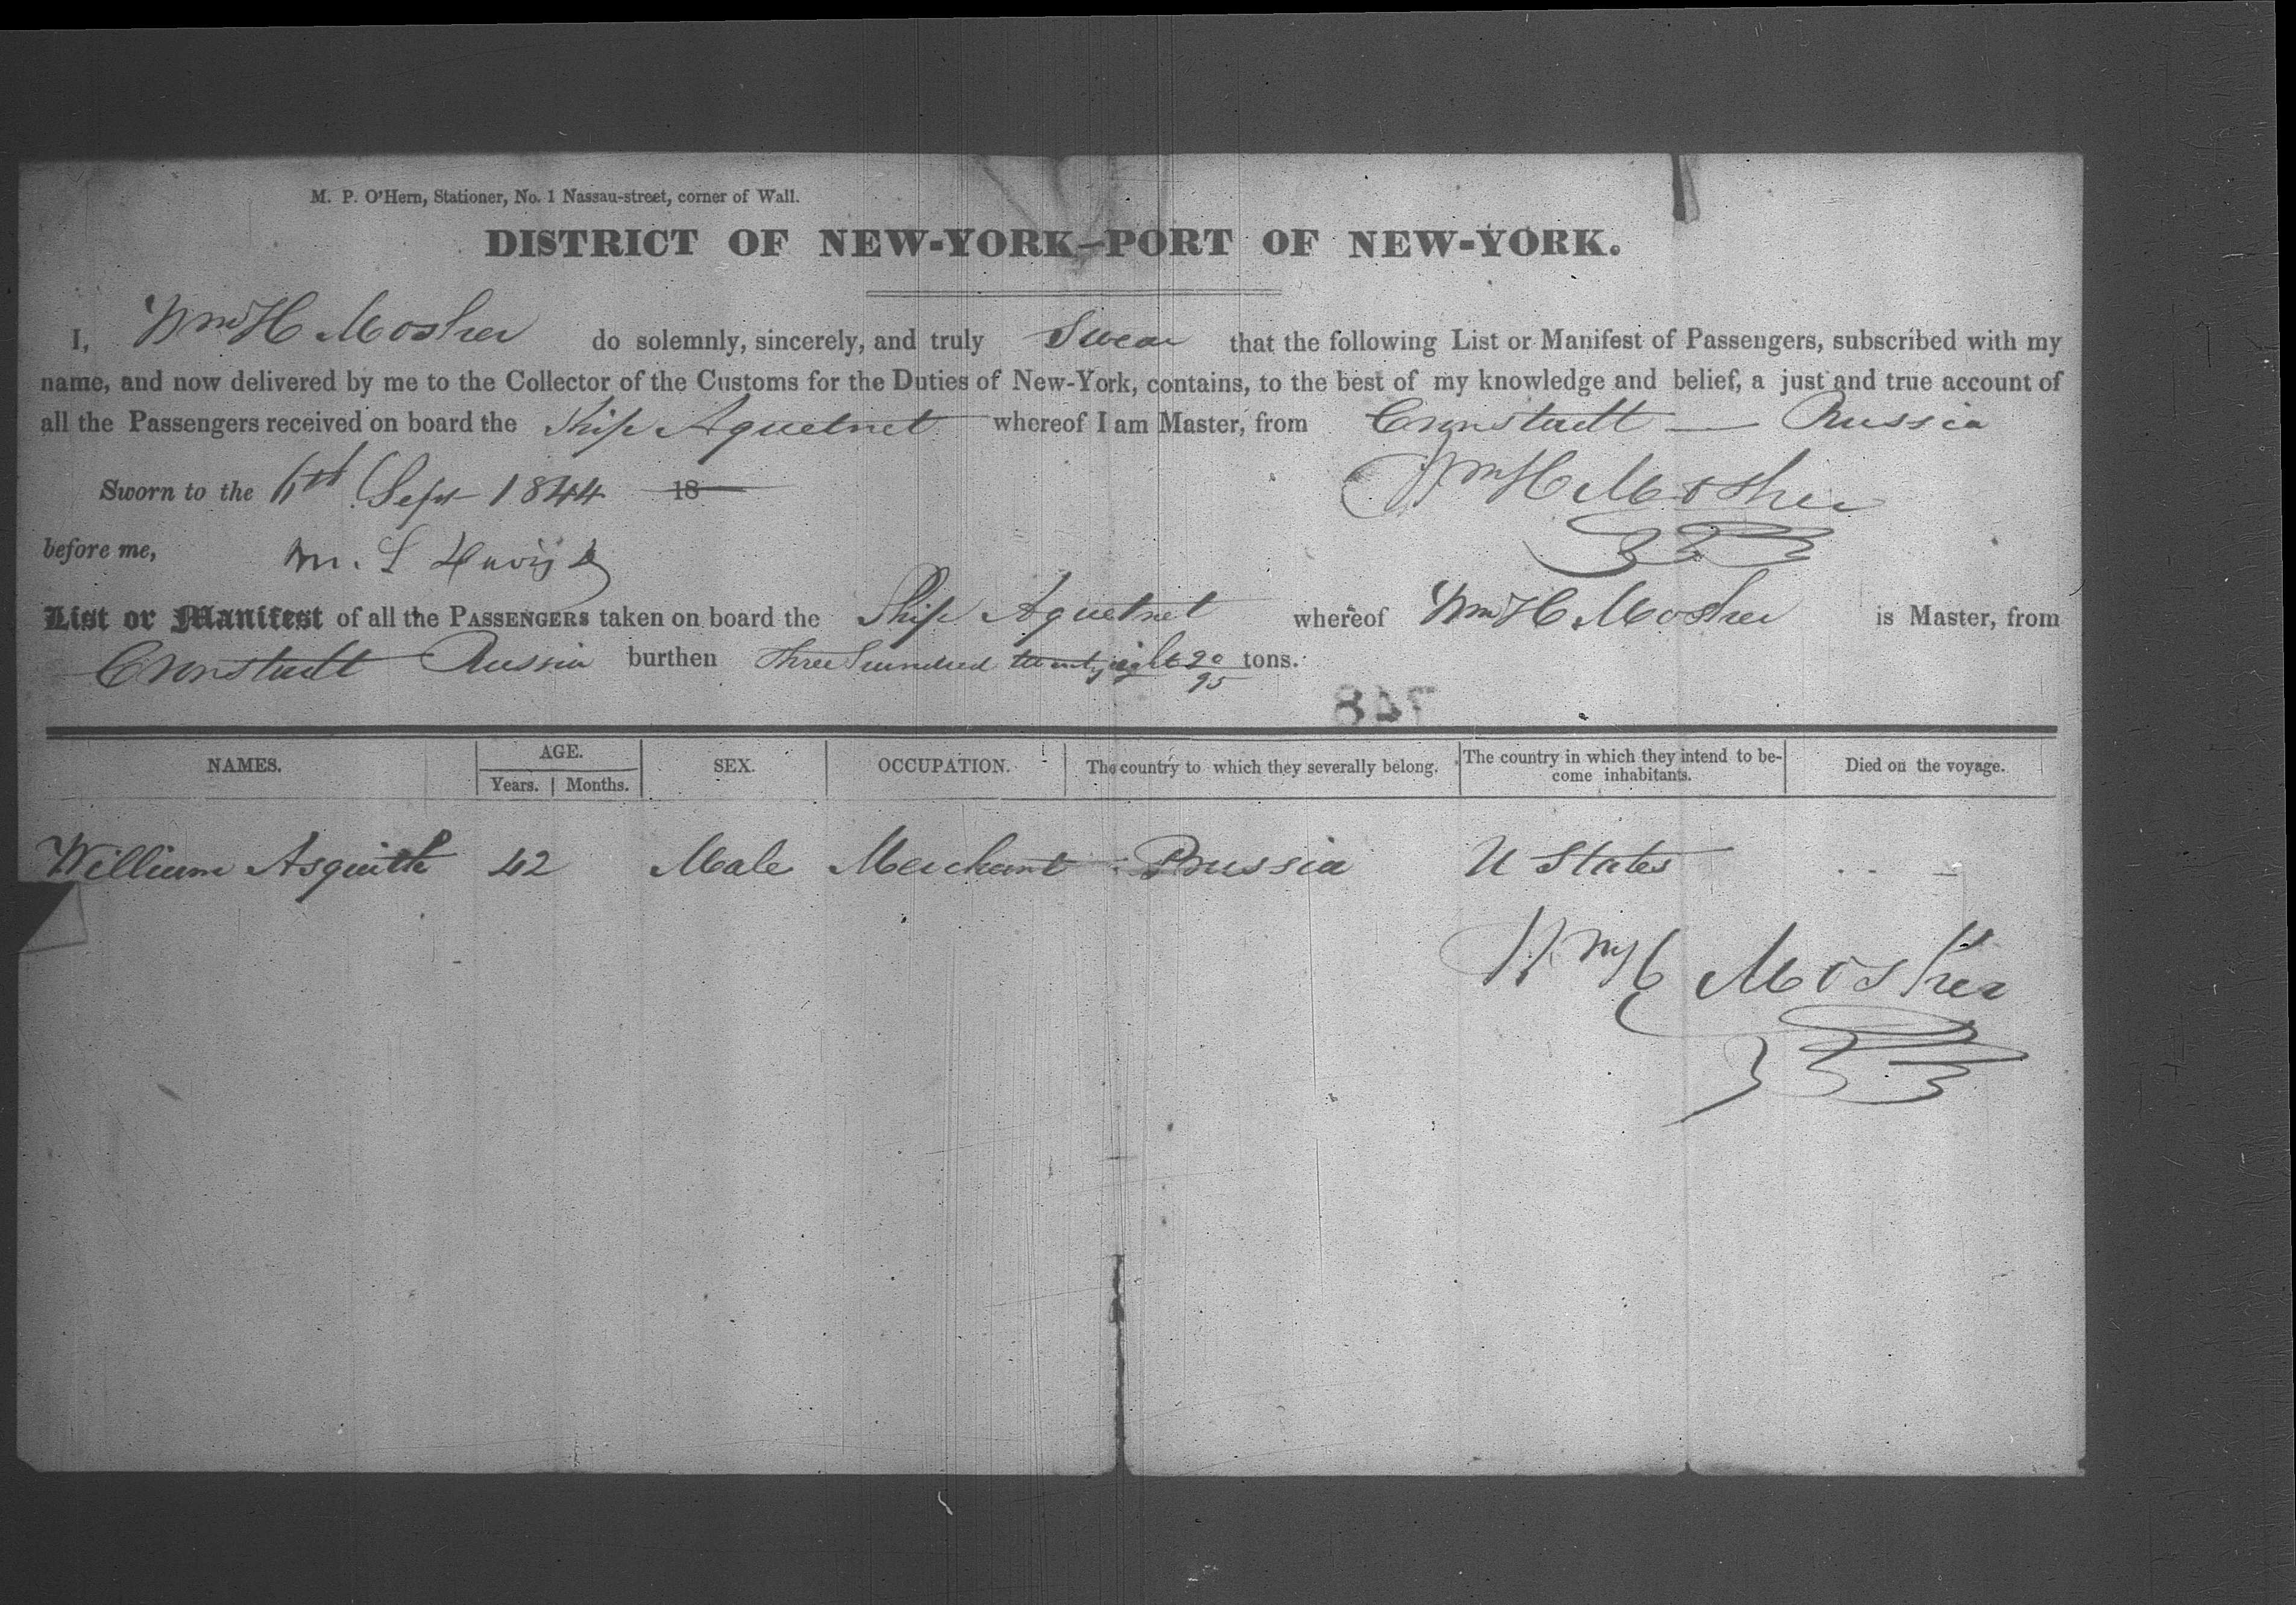 M. P. O'Hern, Stationer, No. 1 Nassau-street, corner of Wall.
DISTRICT OF NEW-YORK–PORT OF NEW-YORK.
I, Wm H Mosher do solemnly, sincerely, and truly Swear that the following List or Manifest of Passengers, subscribed with my
name, and now delivered by me to the Collector of the Customs for the Duties of New-York, contains, to the best of my knowledge and belief, a just and true account of
all the Passengers received on board the Ship Aquetnet whereof I am Master, from Cronstadt — Russia
Sworn to the 6th Sept 1844 18 Wm H Mosher
before me, M. L
List or Manifest of all the PASSENGERS taken on board the Ship Aquetnet whereof Wm H Mosher is Master, from
Cronstadt Russia burthen Three hundred twenty eight 20/95 tons.
748
NAMES. AGE. Years. Months. SEX. OCCUPATION. The country to which they severally belong. The country in which they intend to be-
come inhabitants. Died on the voyage.
William Asquith 42 Male Merchant Prussia U States
Wm H Mosher